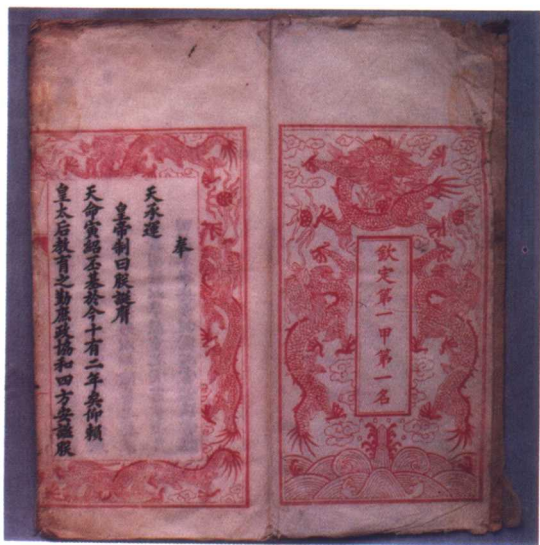 欽定第一甲第一名
奉
天承運
皇帝制曰朕誕膺
天命寅紹丕基於今十有二年矣仰賴
皇太后教育之勤庶政協和四方安謐朕